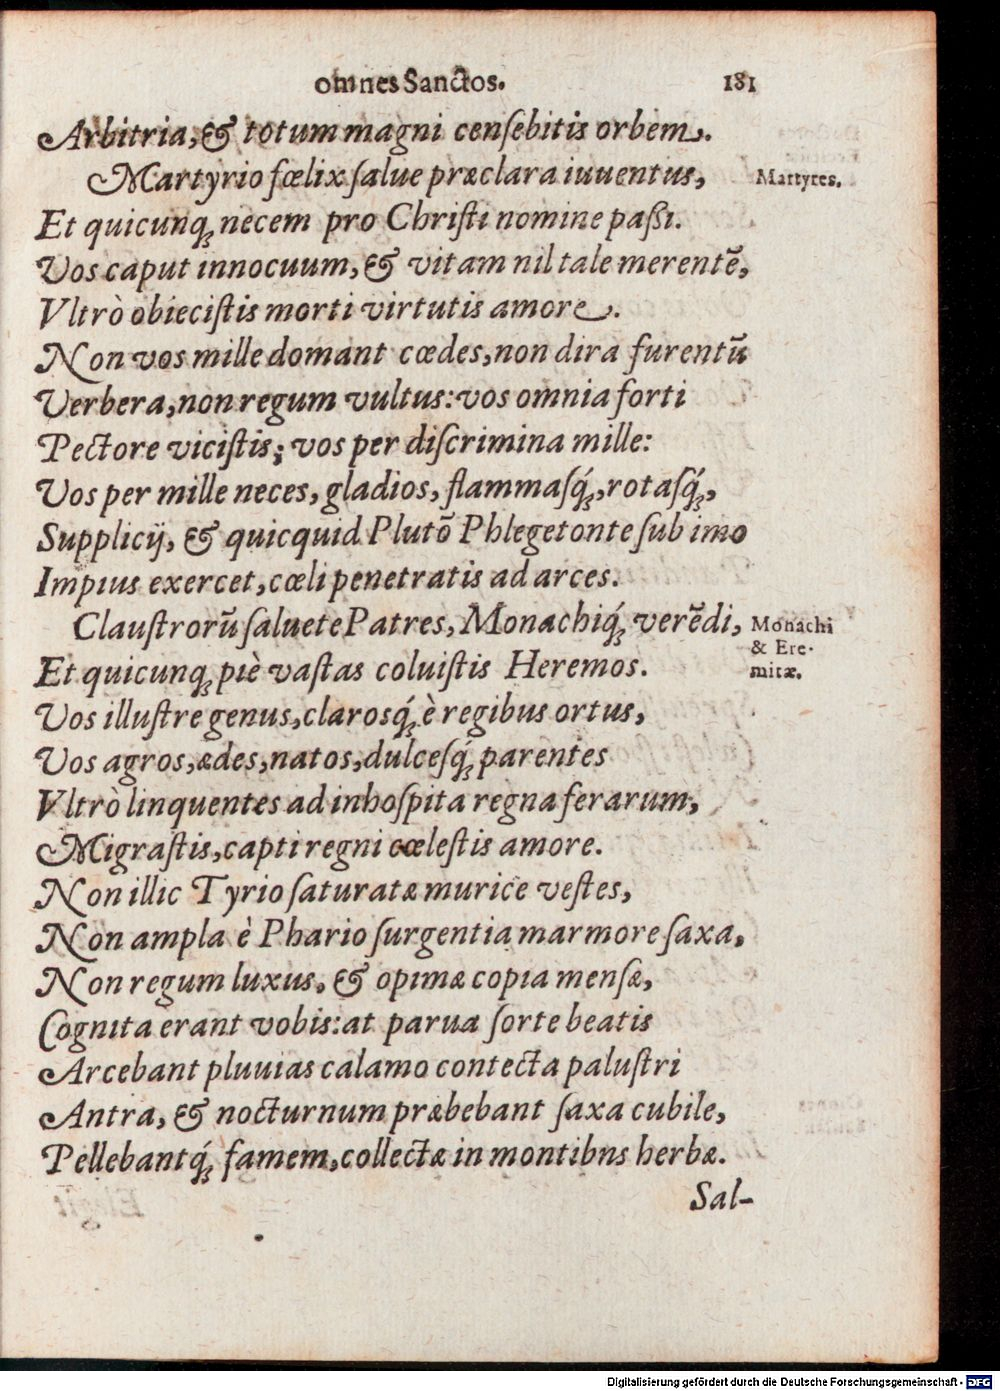 omnes Sanctos. 181
Arbitria, & totum magni censebitis orbem.
Martyrio fœlix salue præclara iuuentus, Martyres.
Et quicunq; necem pro Christi nomine paßi.
Vos caput innocuum, & vitam nil tale merentē,
Vltrò obiecistis morti virtutis amore.
Non vos mille domant cœdes, non dira furentũ
Verbera, non regum vultus: vos omnia forti
Pectore vicistis; vos per discrimina mille:
Vos per mille neces, gladios, flammasq́;, rotasq́;,
Supplicij, & quicquid Plutõ Phlegetonte sub imo
Impius exercet, cœli penetratis ad arces.
Claustrorũ saluete Patres, Monachiq́; verēdi, Monachi
& Ere-
Et quicunq; piè vastas coluistis Heremos. mitæ.
Vos illustre genus, clarosq́; è regibus ortus,
Vos agros, ædes, natos, dulcesq́; parentes
Vltrò linquentes ad inhospita regna ferarum,
Migrastis, capti regni cœlestis amore.
Non illic Tyrio saturatæ murice vestes,
Non ampla è Phario surgentia marmore saxa,
Non regum luxus, & opimæ copia mensæ,
Cognita erant vobis: at parua sorte beatis
Arcebant pluuias calamo contecta palustri
Antra, & nocturnum præbebant saxa cubile,
Pellebantq́; famem, collectæ in montibns herbæ.
Sal-
Digitalisierung gefördert durch die Deutsche Forschungsgemeinschaft - DFG